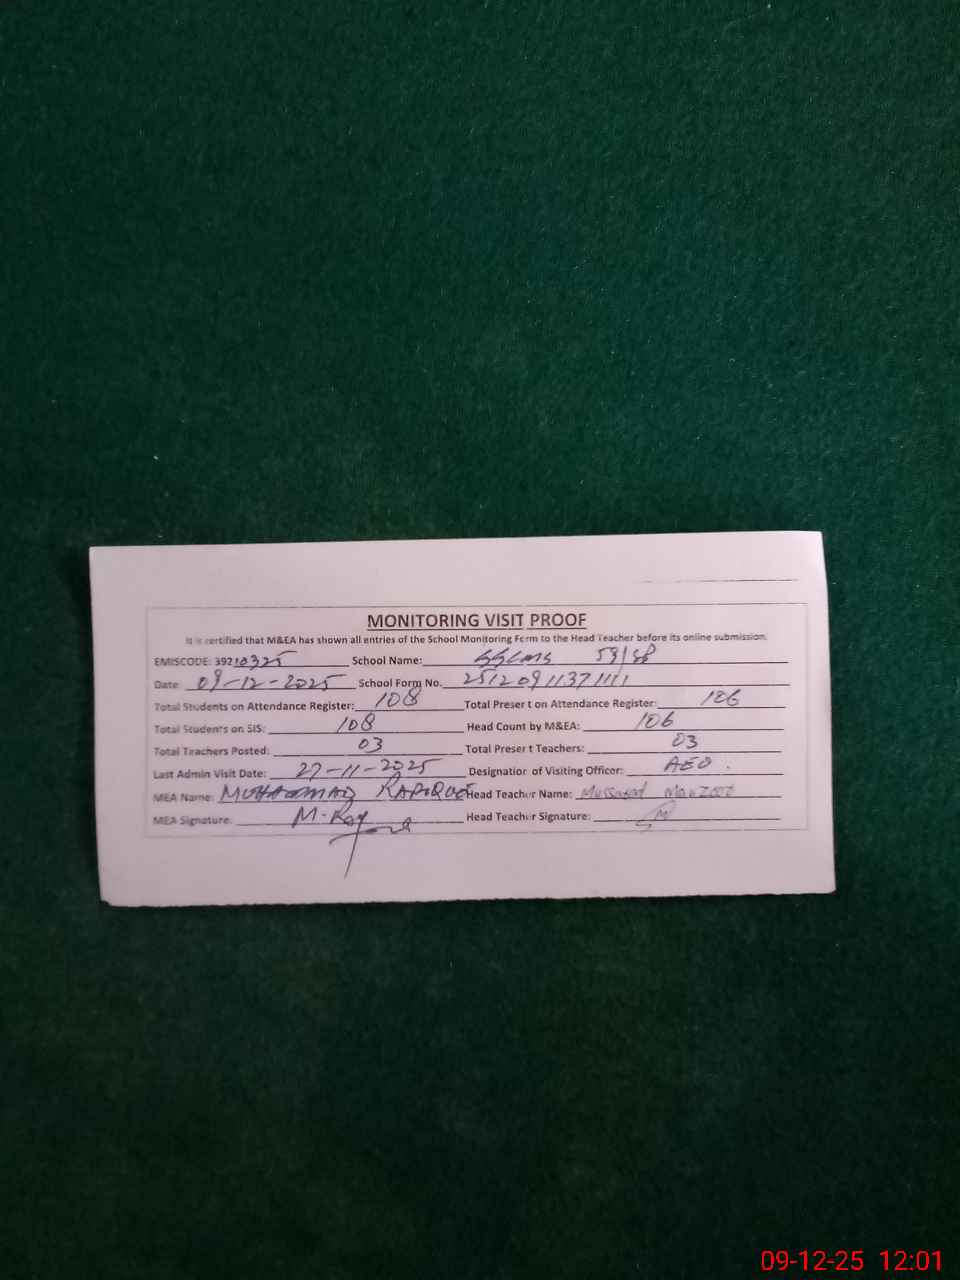 MONITORING VISIT PROOF
It is certified that M&EA has shown all entries of the School Monitoring Form to the Head Teacher before its online submission.
EMISCODE: 39210325 School Name: 59/SB
Date: 09-12-2025 School Form No. 25120911371111
Total Students on Attendance Register: 108 Total Present on Attendance Register: 106
Total Students on SIS: 108 Head Count by M&EA: 106
Total Teachers Posted: 03 Total Present Teachers: 03
Last Admin Visit Date: 27-11-2025 Designation of Visiting Officer: AEO.
MEA Name: MUHAMMAD RAFIQUE Head Teacher Name:
MEA Signature: Head Teacher Signature:
09-12-25 12:01